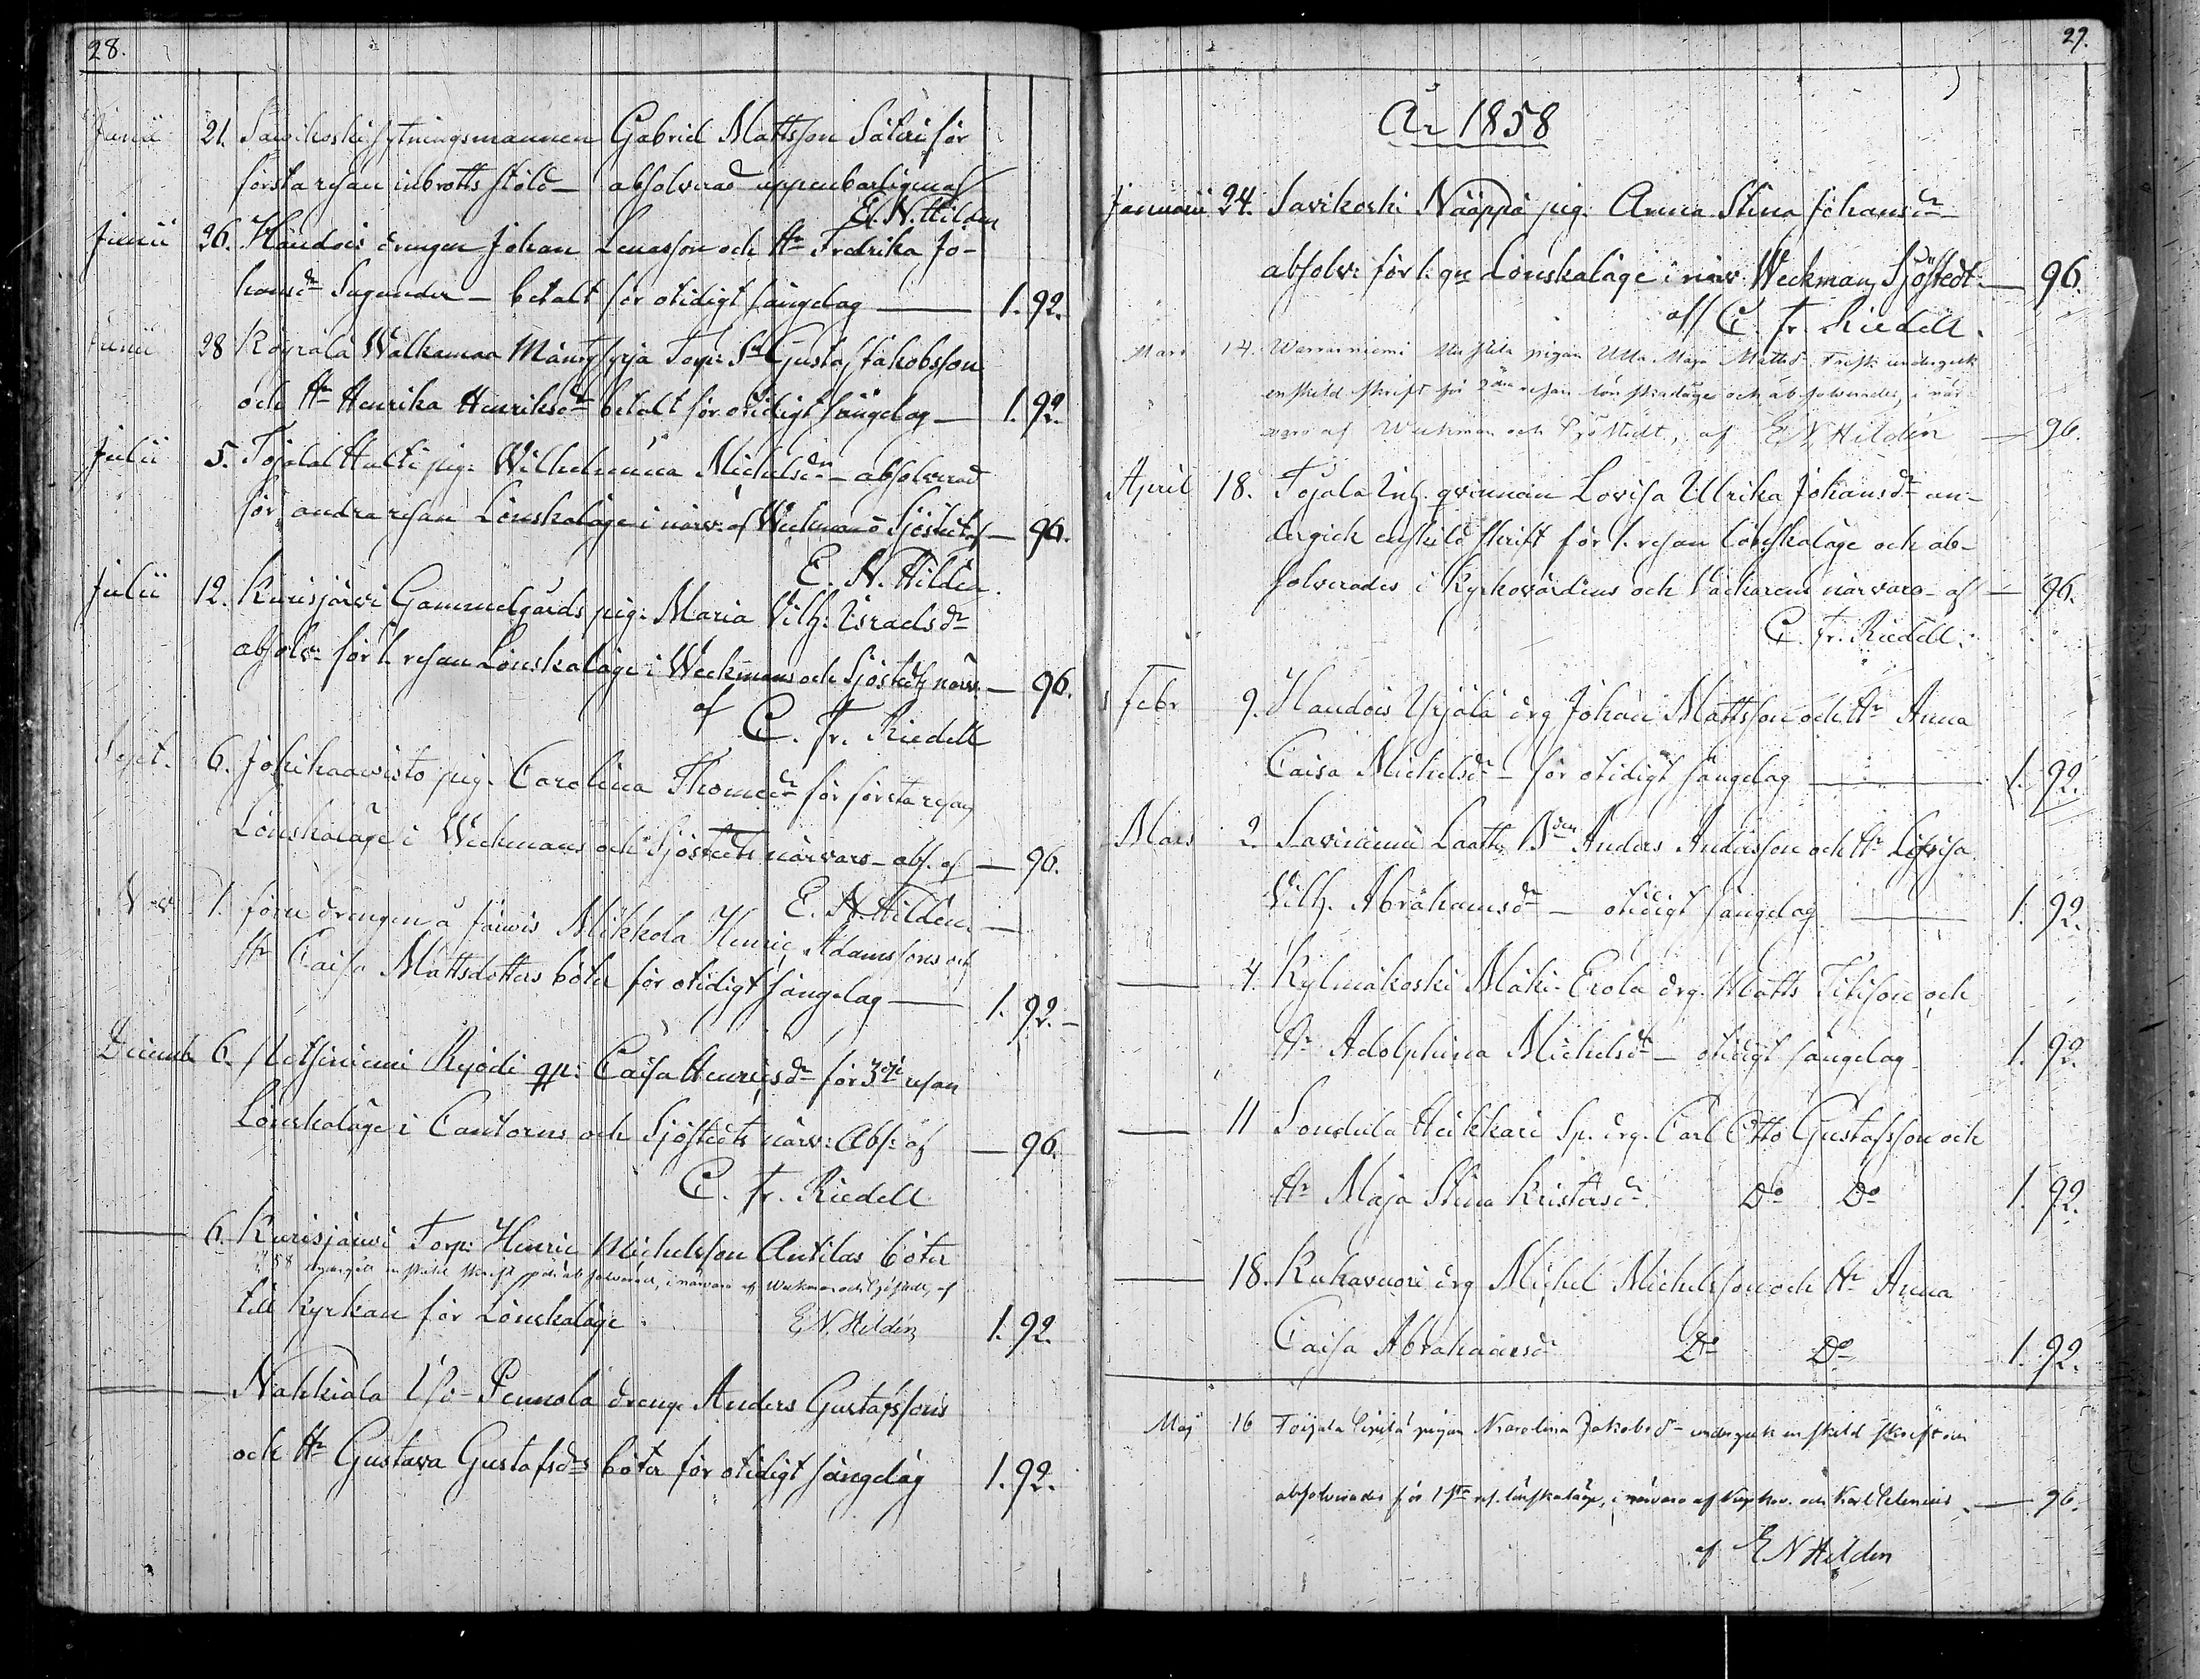 28.
Junii 21. Sawikoski sytningsmannen Gabriel Mattsson Säteri för
första resan inbrotts stöld - absolverad uppenbarligen af
E. N. Hildén
Junii 26. Haudois drengen Johan Enasson och Hr Fredrika Jo-
hansdr Sagander - betalt för otidigt sängelag 1. 92.
Junii 28 Walkamaa Mäntysyrjä Torp: Sn Gustaf Jakobsson
och Hr Henrika Henriksdr betalt för otidigt sängelag - 1. 92.
Julii 5. Tojala Hutti pig: Wilhelmina Michelsdr - absolverad
för andra resan Lönskaläge i närv: af Weckman o Sjöstedt af - 96.
E. N. Hildén.
Julii 12. Kurisjärvi Gammelgårds pig: Maria Vilh: Israelsdr
absolv: för 1. resan Lönskaläge i Weckmans och Sjöstedts närv - 96.
af C. Fr. Riedell
Sept. 6. Jokihaavisto pig. Carolina Thomedr för första resan
Lönskaläge i Weckmans och Sjöstedts närvaro - abs. af - 96.
E. N. Hildén
Nov 1. förre drengen å Mikkola Henric Adamssons och
Hr Caisa Mattsdotters böter för otidigt sängelag 1. 92. -
Decemb 6. Ryödi qp: Caisa Henricsdr för 3die resan
Lönskaläge i Cantorns och Sjöstedts närv: Abs: af - 96.
C. Fr. Riedell
6. Kurisjärvi Torp: Henric Michelsson Antilas böter
58 undergått enskild skrift absolverad, i närvaro af Weckman och Sjöstedt, af
till kyrkan för Lönskaläge. E N. Hildén 1. 92.
Nahkiala Iso-Pennola drenge Anders Gustafssons
och Hr Gustava Gustafsdrs böter för otidigt sängelag 1. 92.
29.
År 1858
Januarii 24. Savikoski Nääppä pig: Anna Stina Johansdr
absolv: för 1. gn Lönskaläge i närv Weckman, Sjöstedt - 96.
af C. Fr. Riedell.
Mars 14. pigan Ulla Maja Mattsd. undergick
enskild skrift för 2dra resan lönskaläge och absolverades, i när
varo af Weckman och Sjöstedt, af E N Hildén - 96.
April 18. Tojala Inh. qvinnan Lovisa Ulrika Johansdr un-
dergick enskild skrift för 1. resan lönskaläge och ab-
solverades i Kyrkovärdens och Väckarens närvaro - af - 96.
C. Fr. Riedell.
Febr 9. Haudois Yrjölä drg Johan Mattsson och Hr Anna
Caisa Michelsdr - för otidigt sängelag 1. 92.
Mars 2. Savinimi Laatto Bden Anders Andersson och Hr Lovisa
Vilh. Abrahamsdr - otidigt sängelag 1. 92.
4. Kylmäkoski Mäki-Erola drg. Matts och
Hr Adolphina Michelsdr - otidigt sängelag 1. 92.
11 Sontula Heikkari Sp. drg. Carl Otto Gustafsson och
Hr Maja Stina Kristersdr Do Do 1. 92.
18. Kuhavuori drg Michel Michelsson och Hr Anna
Caisa Abrahamsdr Do Do 1. 92.
Maj 16 Toijala pigan Karolina Jakobsd - undergick enskild skrift och
absolverades för 1sta res. lönskaläge, i närvaro af Kyrkov. och Karl - 96.
af E N Hildén